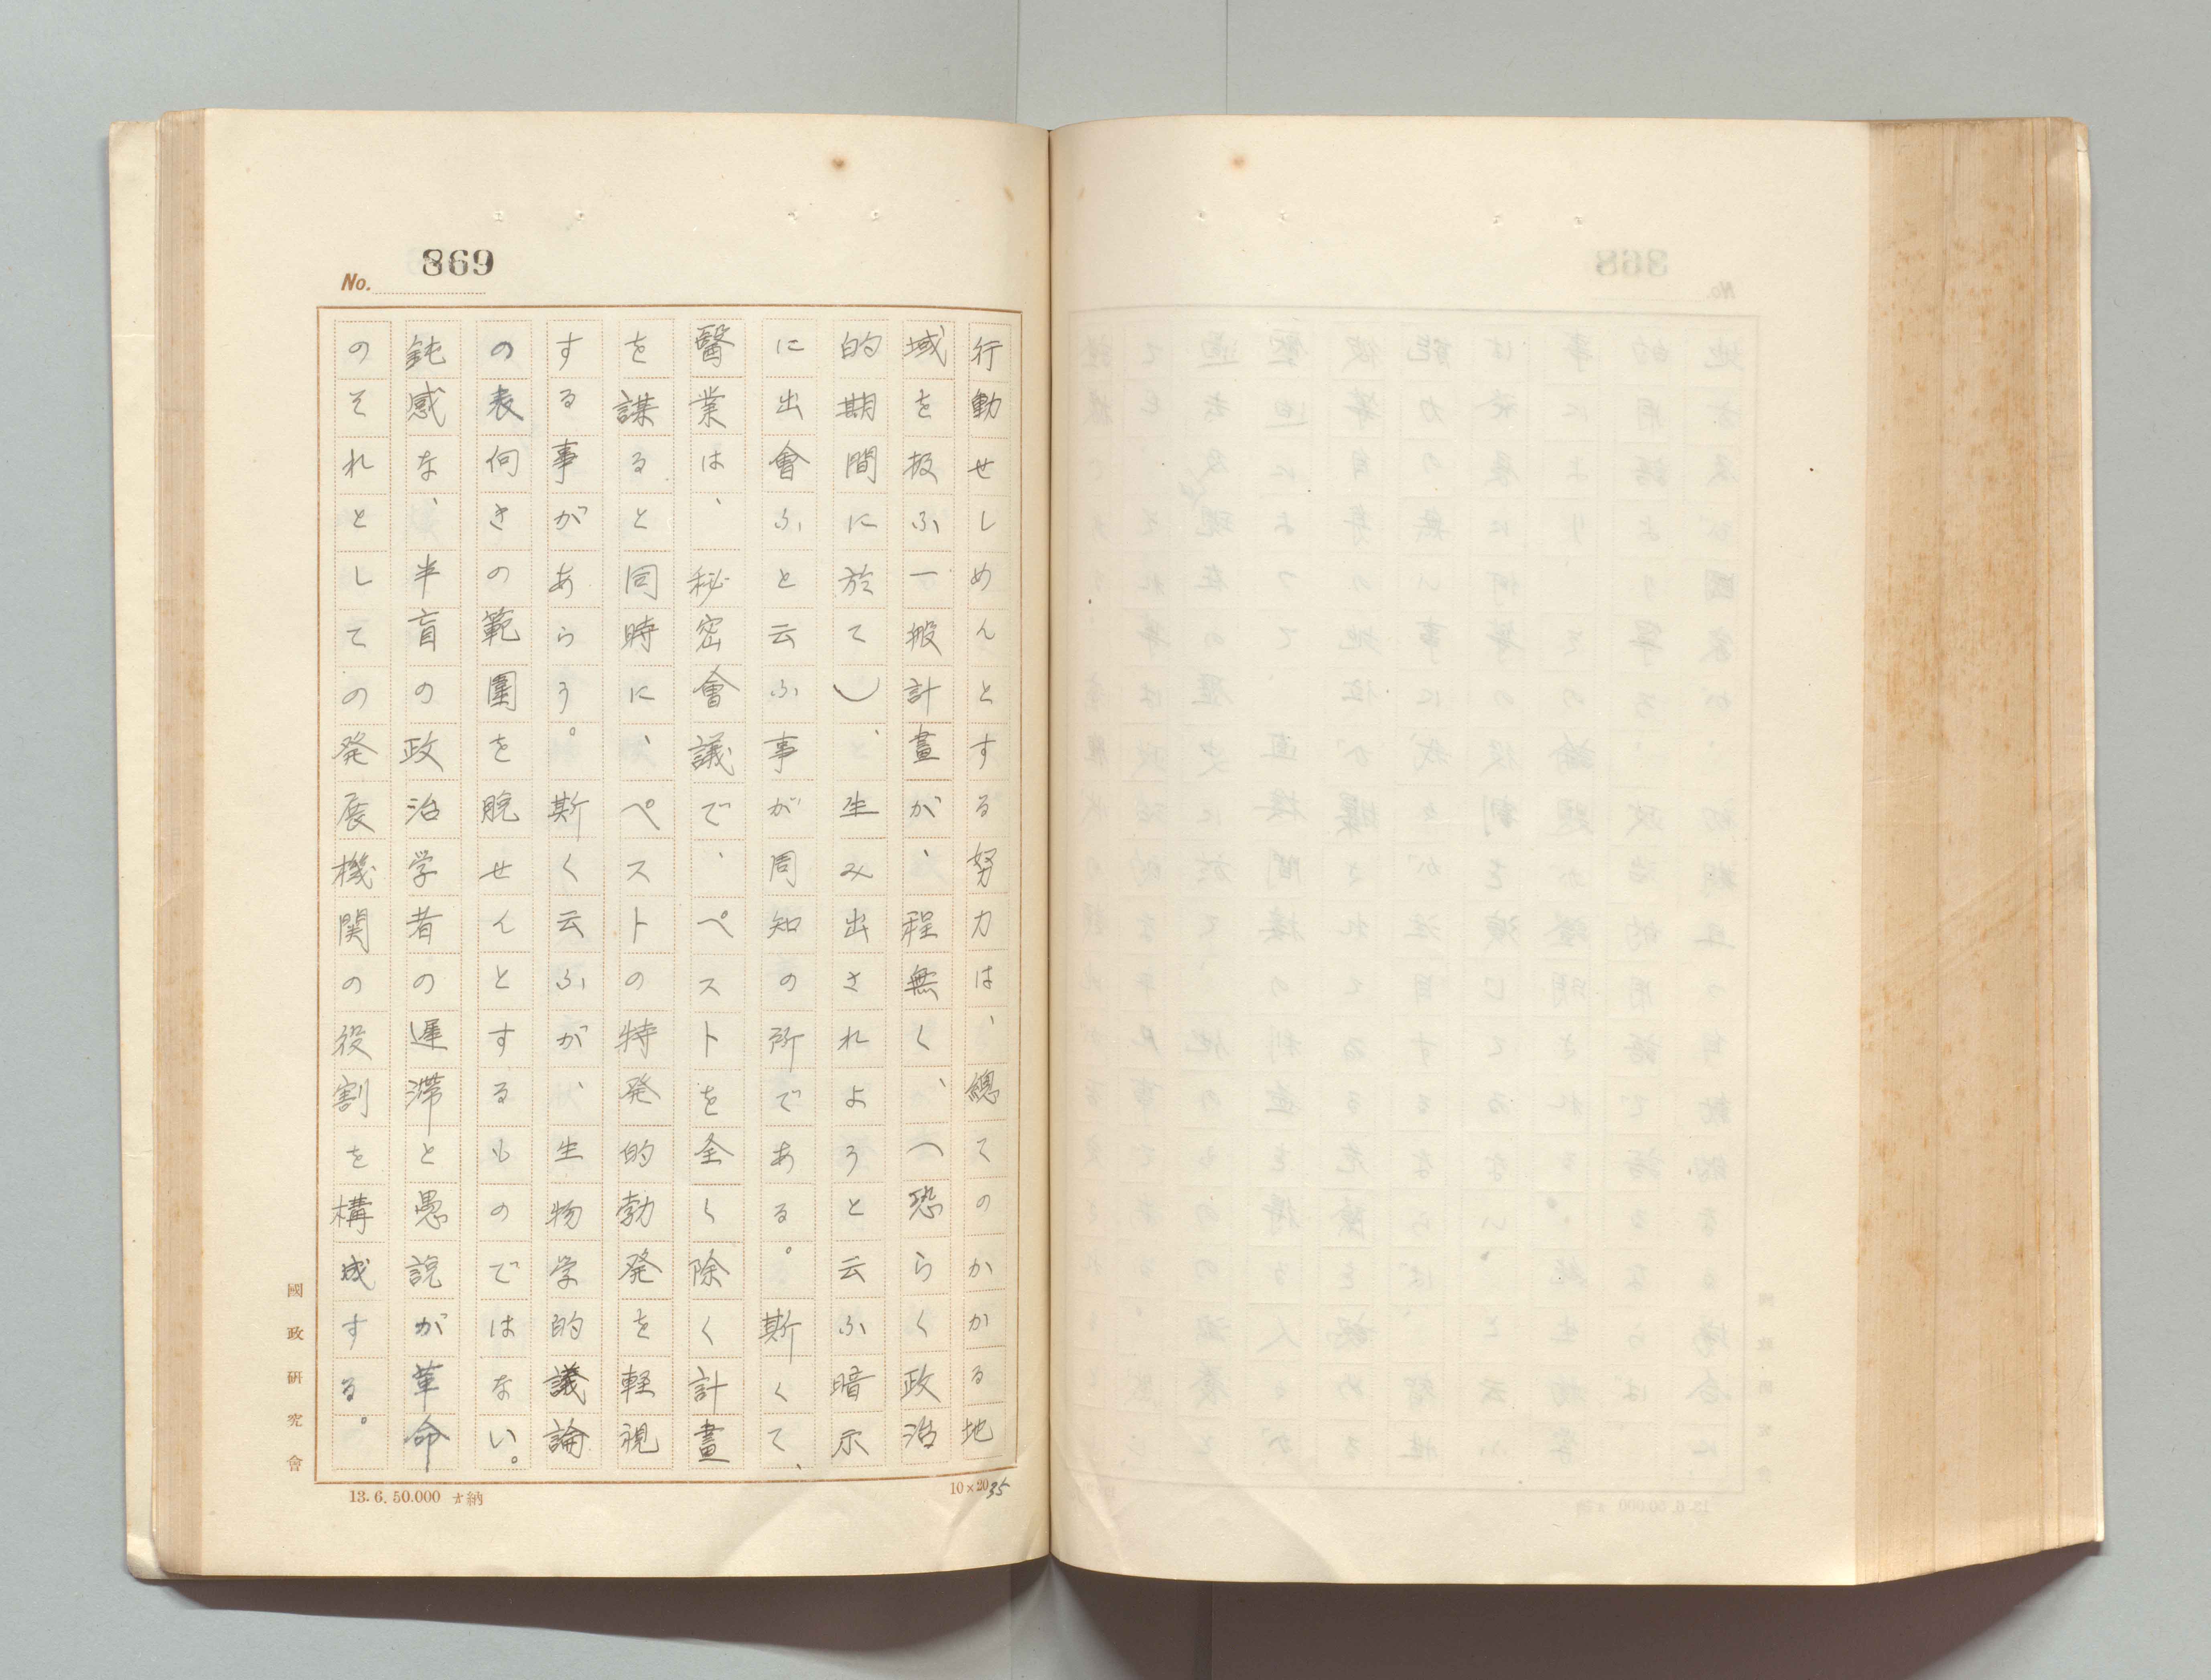 No. 369
行動せしめんとする努力は、總てのかかる地
域を扱ふ一搬計畫が、程無く、（恐らく政治
的期間に於て）、生み出されようと云ふ暗示
に出會ふと云ふ事が周知の所である。斯くて、
醫業は、秘密會議で、ペストを全く除く計畫
を謀ると同時に、ペストの特発的勃発を軽視
する事があらう。斯く云ふが、生物学的議論
の表向きの範圍を脱せんとするものではない。
鈍感な、半盲の政治学者の遅滞と愚説が革命
のそれとしての発展機関の役割を構成する。
國政研究會
13.6.50.000 才納
10×20
35